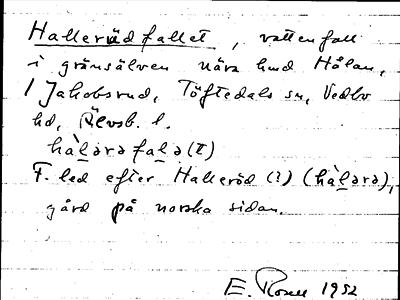 Hallerödfallet, vattenfall
i gränsälven nära lmd Hålan,
1 Jakobsrud, Töftedals sn, Vedbo
hd, Älvsb. l.
hàl̲ərəfal̲ə(t)
F. led efter Halleröd (?) (hàl̲ərə),
gård på norska sidan.
E. Rosell 1952